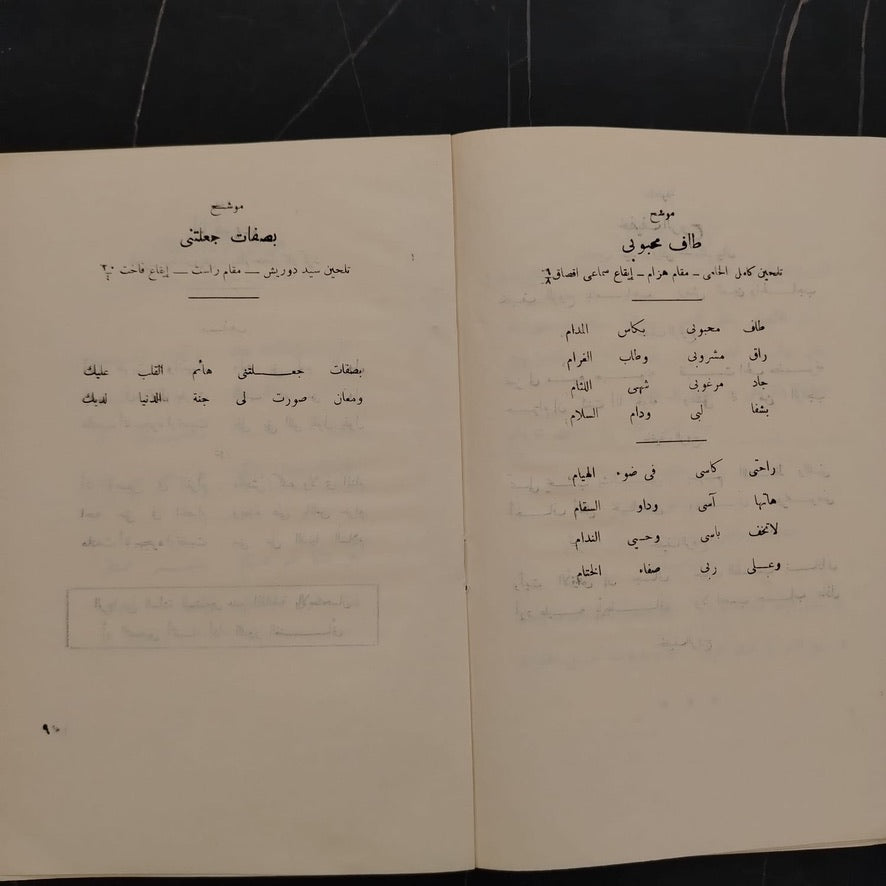 موشح
طاف محبوبي
تلحين كامل الخلعى - مقام هزام - إيقاع سماعى اقصاق ٩/٨
طاف محبوبى بكاس المدام
راق مشروبى وطاب الغرام
جاد مرغوبى شهى اللثام
بشفا لبى ودام السلام
راحتى كاسى فى ضوء الهيام
هاتها آسى وداو السقام
لاتخف باسى وحسبى الندام
وعلى ربى صفاء الختام
موشح
بصفات جعلتنى
تلحين سيد درويش - مقام راست - إيقاع فاخت ٢٠/٤
بصفات جعلتنى هائم القلب عليك
ومعان صورت لى جنة الدنيا لديك